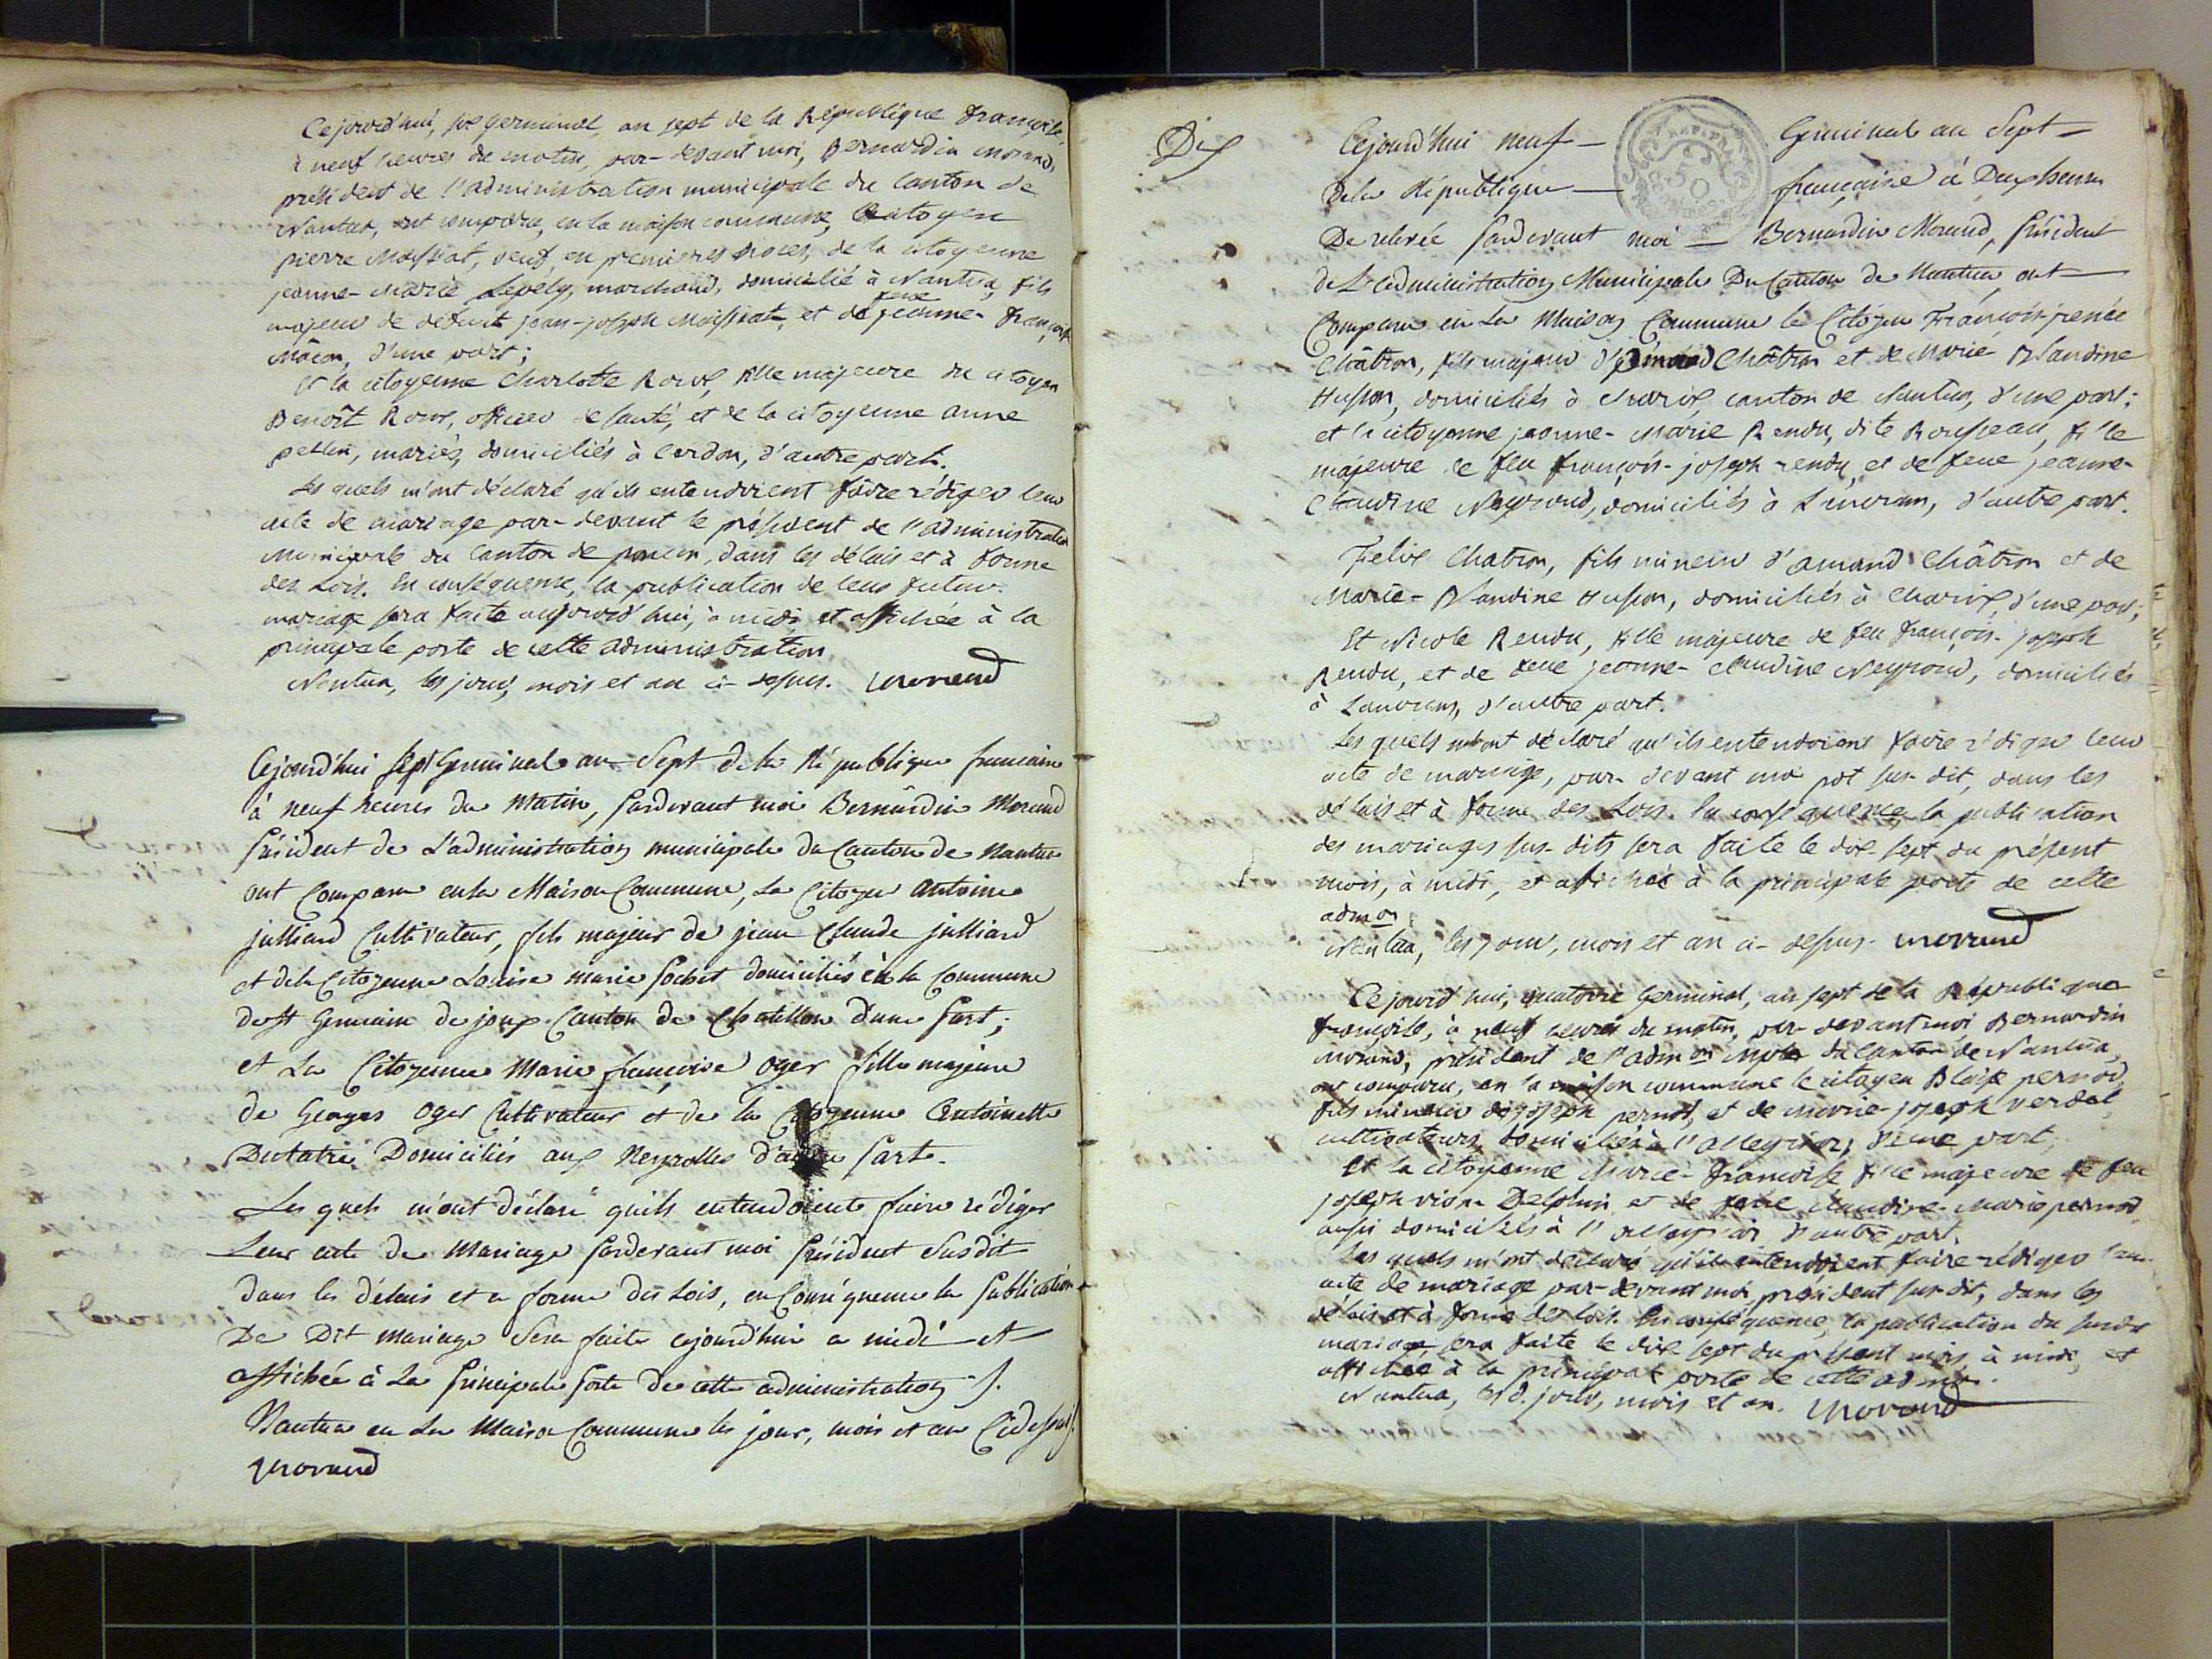 Cejourd'hui, six germinal an sept de la République françoise,
à neuf heures du matin, par-devant moi, Bernardin Morand,
président de l'administration municipale du canton de
Nantua, ont comparu, en la maison commune, citoyen
pierre Maissiat, veuf, en premieres noces, de la citoyenne
jeanne-Marie Levely, marchand, domicilié à Nantua, fils
majeur de défunt jean-joseph Maissiat, et de feue jeanne-françoise
Mâcon, d'une part;
Et la citoyenne Charlotte Roux, fille majeure du citoyen
Benoît Roux, officier de santé, et de la citoyenne anne
peslin, mariés, domiciliés à Cerdon, d'autre part.
Les quels m'ont déclaré qu'ils entendoient faire rédiger leur
acte de mariage par-devant le président de l'administration
municipale du canton de poncin, dans les délais et à forme
des Lois. En conséquence, la publication de leur futur
mariage sera faite aujourd'hui, à midi et affichée à la
principale porte de cette administration
Nantua, les jour, mois et an ci-dessus. Morand
Cejourd'hui Sept Germinal an Sept de la République francaise
à neuf heures du Matin, pardevant moi Bernardin Morand
Président de L'administration municipale du Canton de Nantua
ont Comparu en la Maison Commune, Le Citoyen antoine
julliard Cultivateur, fils majeur de jean Claude julliard
et dela Citoyenne Louise marie pochet domiciliés èn la Commune
de st Germain de joux Canton de Chatillon d'une part;
et La Citoyenne Marie françoise oger fille majeure
de Georges oger Cultivateur et de la Citoyenne Antoinette
Dutatre Domiciliés aux Neyrolles d'autre part.
Les quels m'ont déclaré qu'ils entendoient faire rédiger
Leur acte de Mariage pardevant moi président Susdit
dans les délais et a forme des Lois, en Conséquence la publication
De Dit mariage Sera faite cejourd'hui a midi et
affichée à La principale porte de cette administration
Nantua en La Maison Commune les jour, mois et an Cidessus
Morand
Dix
Cejourd'hui neuf Germinal an Sept
dela République française à Deux heures
De relevée pardevant moi Bernardin Morand, président
de L'administration Municipale Du Canton de Nantua ont
Comparu en La Maison Commune le Citoyen François-
Châtron, fils majeur d'amand Châtron et de Marie Blandine
Husson, domiciliés à Charix, canton de Nantua, d'une part;
et la citoyenne jeanne-Marie Rendu, dite Rousseau, fille
majeure de feu françois-joseph rendu, et de feue jeanne-
Claudine Neyroud, domiciliés à , d'autre part.
Felix Chatron, fils mineur d'amand Châtron et de
Marie-Blandine Husson, domiciliés à Charix, d'une part;
Et Nicole Rendu, fille majeure de feu françois-joseph
Rendu, et de feue jeanne-claudine Neyroud, domiciliés
à , d'autre part.
Les quels m'ont déclaré qu'ils entendoient faire rédiger leur
acte de mariage, par-devant moi pdt sus-dit, dans les
délais et à forme des Lois. En conséquence, la publication
des mariages sus-dits sera faite le dix-sept du présent
mois, à midi, et affichée à la principale porte de cette
admon.
Nantua, les jour, mois et an ci-dessus. Morand
Cejourd'hui, quatorze Germinal, an sept de la République
françoise, à neuf heures du matin, par-devant moi Bernardin
Morand, président de l'admon mple du canton de Nantua,
ont comparu, en la maison commune le citoyen Blaise pernod,
fils mineur de joseph pernod, et de Marie-joseph verdet,
cultivateurs, domiciliés à l'alleyriat, d'une part,
Et la citoyenne Marie-françoise fille majeure de feu
joseph vion Delphin et de feue claudine-Marie pernod,
aussi domiciliés à l'alleyriat d'autre part.
Les quels m'ont déclaré qu'ils entendoient faire rédiger leur
acte de mariage par-devant moi président sus-dit, dans les
délais et à forme des lois. En conséquence, la publication du susdit
mariage sera faite le dix sept du présent mois, à midi, et
affichée à la principale porte de cette admon.
Nantua, les d. jour, mois et an. Morand